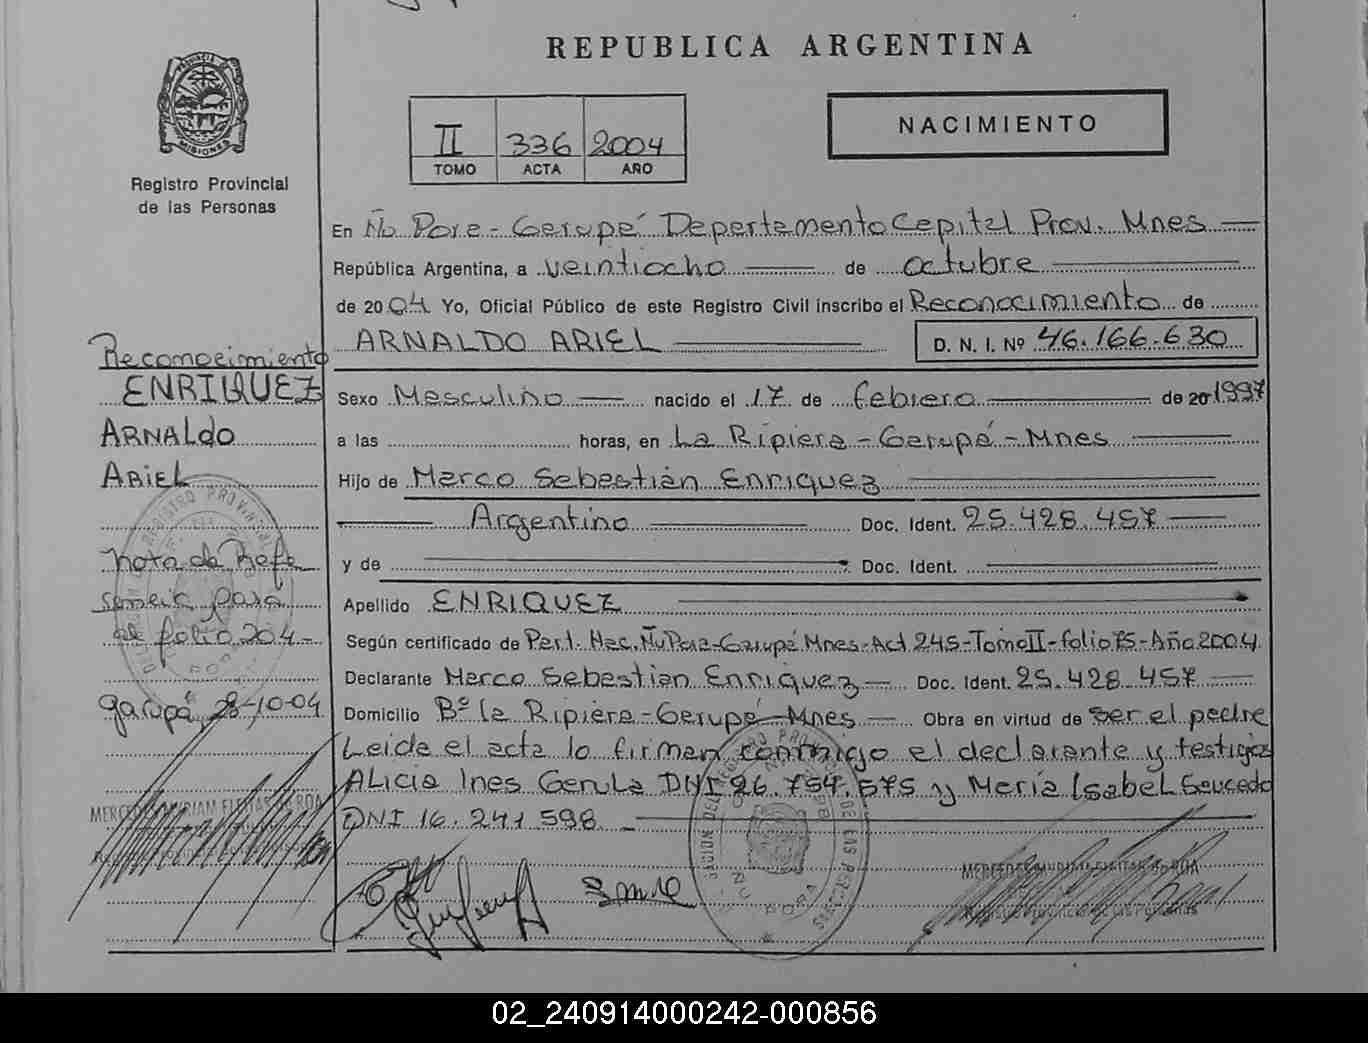 REPUBLICA ARGENTINA
PROVINCIA DE
MISIONES
Registro Provincial
de las Personas
II 336 2004
TOMO ACTA AÑO
NACIMIENTO
En Ñu Pora - Garupá Departamento Capital Prov. Mnes
República Argentina, a veintiocho de octubre
de 2004 Yo, Oficial Público de este Registro Civil inscribo el Reconocimiento de
ARNALDO ARIEL D. N. I. Nº 46.166.630
Sexo Masculino nacido el 17 de febrero de 20 1997
a las horas, en La Ripiera - Garupá - Mnes
Hijo de Marco Sebastián Enriquez
Argentino Doc. Ident. 25.428.457
y de Doc. Ident.
Apellido ENRIQUEZ
Según certificado de Part. Nac. Ñu Pora - Garupá Mnes - Act 245 - Tomo II - folio 75 - Año 2004
Declarante Marco Sebastian Enriquez Doc. Ident. 25.428.457
Domicilio Bº la Ripiera - Garupá - Mnes Obra en virtud de ser el padre
Leida el acta lo firman conmigo el declarante y testigos
ALicia Ines Genula DNI 26.754.575 y María Isabel Saucedo
DNI 16.241.598
Reconocimiento
ENRIQUEZ
ARNALDO
ARIEL
Nota de Refe
rencia pasa
al folio 204
garupá 28-10-04
02_240914000242-000856